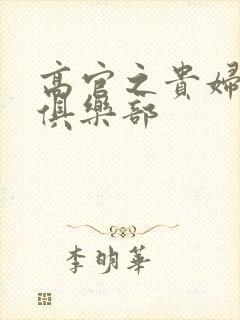 高官之貴婦
俱樂部
李明華